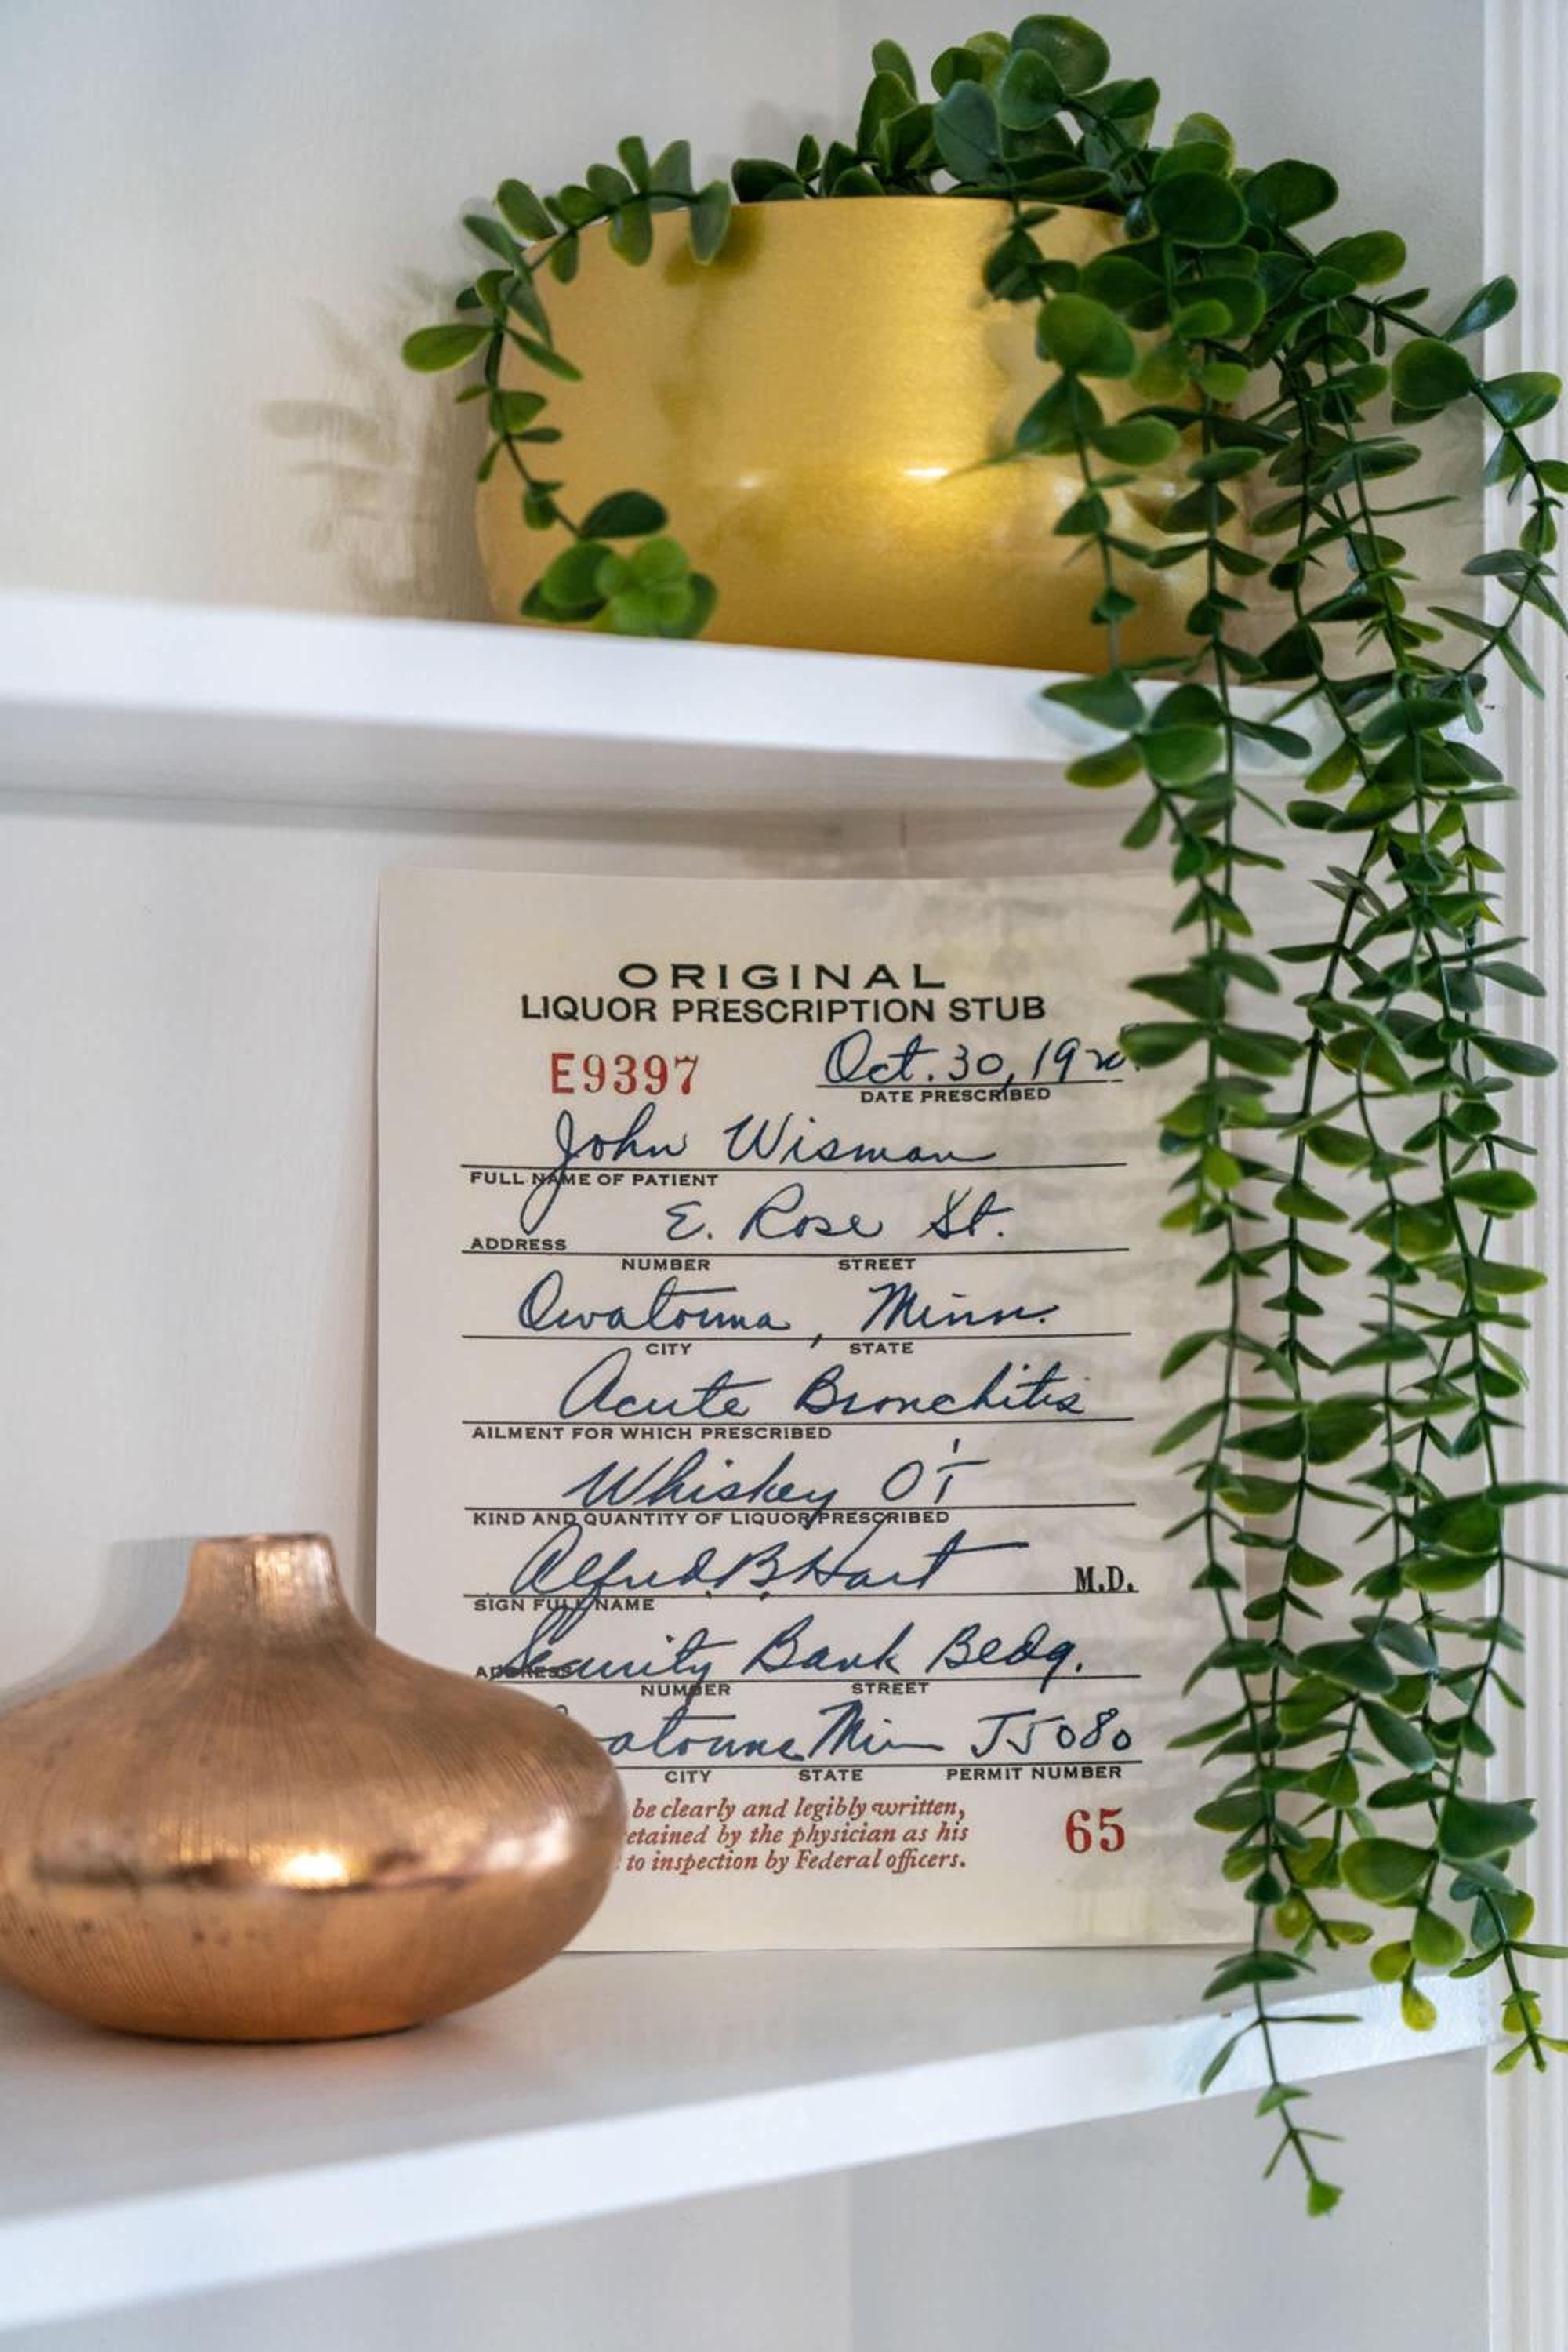 ORIGINAL
LIQUOR PRESCRIPTION STUB
E9397 Oct. 30, 19
DATE PRESCRIBED
John Wisman
FULL NAME OF PATIENT
E. Rose St.
ADDRESS
NUMBER STREET
Owatonna, Minn.
CITY STATE
Acute Bronchitis
AILMENT FOR WHICH PRESCRIBED
Whiskey
KIND AND QUANTITY OF LIQUOR PRESCRIBED
Alfred B Hart M.D.
SIGN FULL NAME
ADDRESS Security Bank Bldg.
NUMBER STREET
atonna Minn J5080
CITY STATE PERMIT NUMBER
be clearly and legibly written,
etained by the physician as his
to inspection by Federal officers.
65